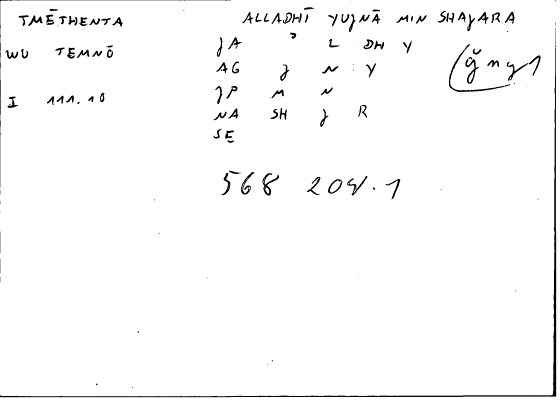 TMĒTHENTA
WU TEMNŌ
I 111.10
ALLADHĪ YUJNĀ MIN SHAJARA
JA ʾ L DH Y
AG J N Y
JP M N
NA SH J R
SE
(ğny)
568 204.1